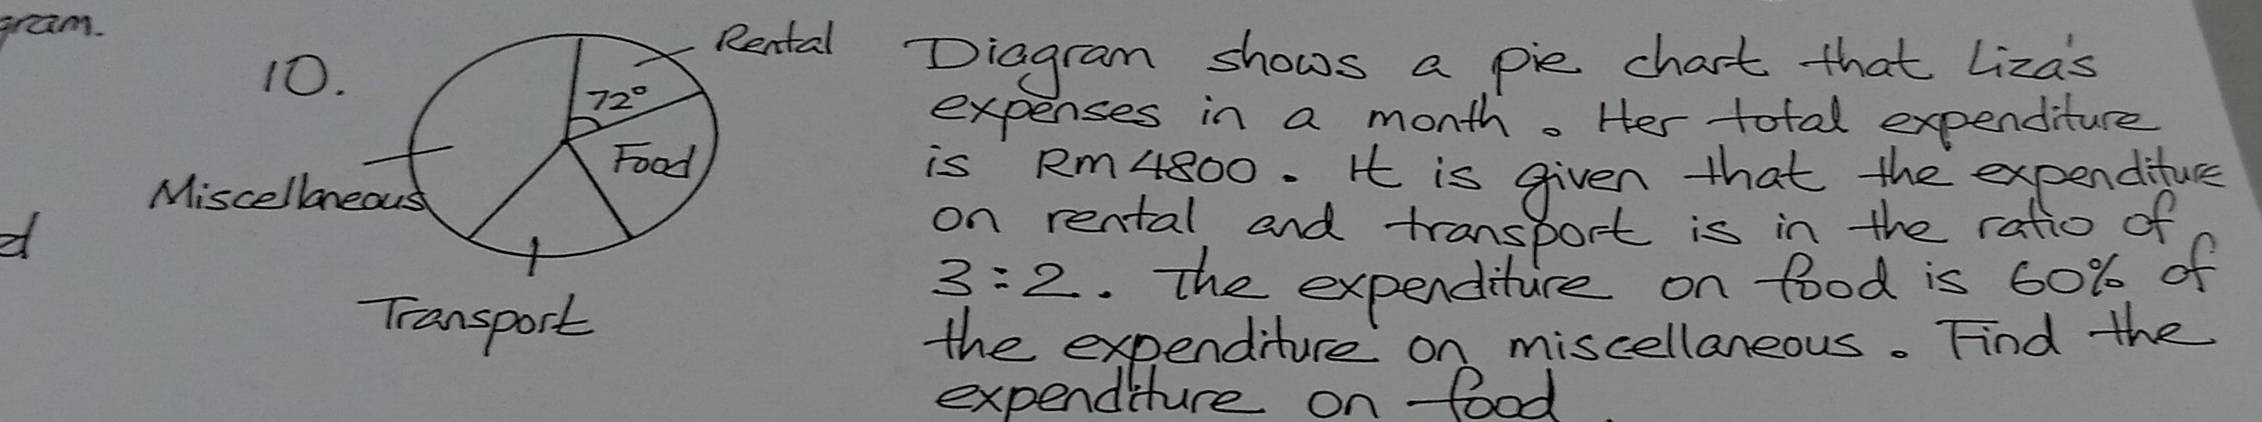 gram.
10.
Rental
72°
Food
Miscellaneous
d
Transport
Diagram shows a pie chart that Liza's
expenses in a month. Her total expenditure
is RM 4800. It is given that the expenditure
on rental and transport is in the ratio of
3:2. The expenditure on food is 60% of
the expenditure on miscellaneous. Find the
expenditure on food.